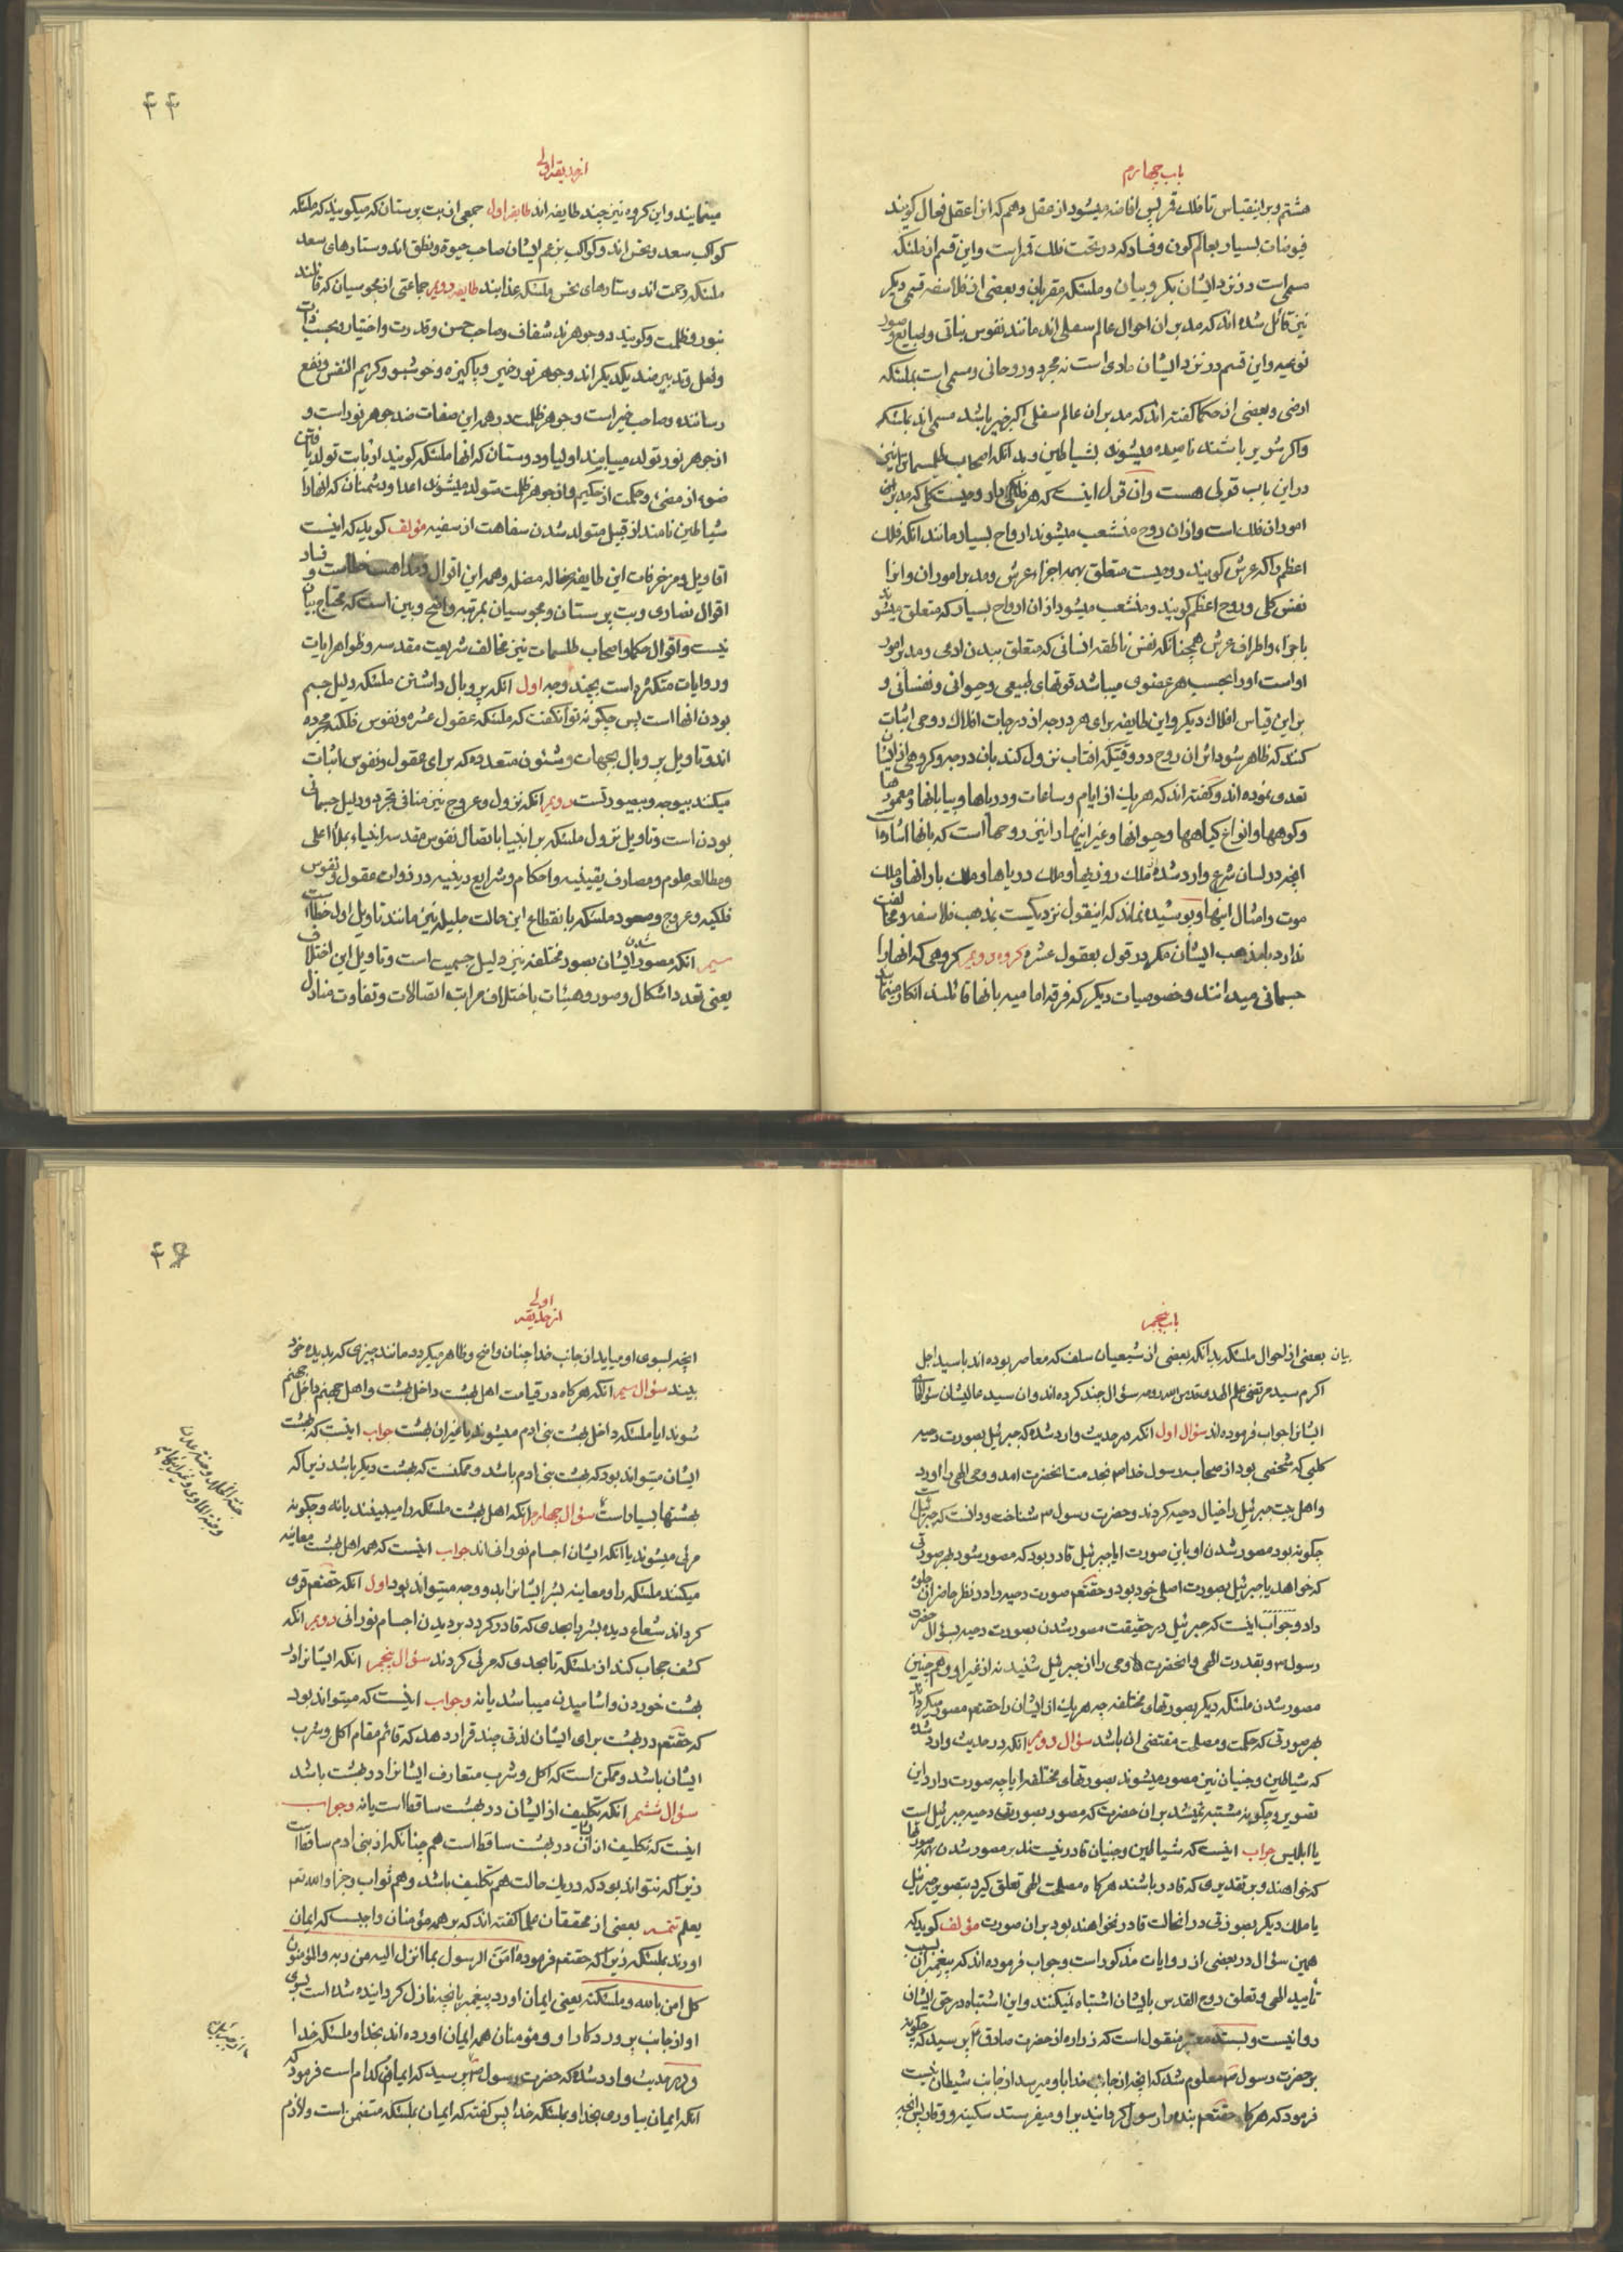 باب چهارم
هشتم و براینقیاس تا فلك قمر پس افاضه میشود از عقل دهم که انرا عقل فعال کویند
فیوضات بسیار بعالم کون و فساد که در تحت فلك قمر است و این قسم از ملئکه
مسمی است در نزد ایشان بکروبیان و ملئکه مقربان و بعضی از فلاسفه قسمی دیکر
نیز قائل شده اند که مدبران احوال عالم سفلی اند مانند نفوس نباتی و طبایع و صور
نوعیه و این قسم در نزد ایشان مادی است نه مجرد و روحانی و مسمی است بملئکه
ارضی و بعضی از حکما کفته اند که مدبران عالم سفلی اکر خیر باشند مسمی اند بملئکه
و اکر شریر باشند نامیده میشوند بشیاطین و بدانکه اصحاب طلسمات را نیز
در این باب قولی هست و ان قول اینست که هر فلکی را روحیست کلی که مدبر
امور ان فلك است و از ان روح منشعب میشوند ارواح بسیار مانند انکه فلك
اعظم را که عرش کویند روحیست متعلق بهمه اجزاء عرش و مدبر امور ان و انرا
نفس کلی و روح اعظم کویند و منشعب میشود از ان ارواح بسیار که متعلق میشوند
باجزاء و اطراف عرش همچنانکه نفس ناطقه انسانی که متعلق ببدن ادمی و مدبر امور
او است او را بحسب هر عضوی میباشد قوتهای طبیعی و حیوانی و نفسانی و
بر این قیاس افلاك دیکر و این طایفه برای هر درجه از درجات افلاك روحی اثبات
کنند که ظاهر شود اثر ان روح در وقتیکه افتاب نزول کند بان درجه و کروهی از ایشان
تعدی نموده اند و کفته اند که هر یك از ایام و ساعات و دریاها و بیابانها و معمورها
و کوهها و انواع کیاهها و حیوانها و غیر اینها را نیز روحها است که بانها اشاره است
انچه در لسان شرع وارد شده ملك روزیها و ملك دریاها و ملك بارانها و ملك
موت و امثال اینها و پوشیده نماند که اینقول نزدیکست بمذهب فلاسفه و مخالفت
ندارد با مذهب ایشان مکر در قول بعقول عشره کروه دویم کروهی که انها را
جسمانی میدانند و خصوصیات دیکر که فرقه امامیه بانها قائلند انکار مینمایند
۴۴
از حدیقه اولی
مینمایند و این کروه نیز چند طایفه اند طایفه اول جمعی از بت پرستان که میکویند که ملئکه
کواکب سعد و نحس اند و کواکب بزعم ایشان صاحب حیوة و نطق اند و ستارهای سعد
ملئکه رحمت اند و ستارهای نحس ملئکه عذابند طایفه دویم جماعتی از مجوسیان که قائلند
بنور و ظلمت و کویند دو جوهرند شفاف و صاحب حس و قدرت و اختیار و بحسب ذات
و فعل و تدبیر ضد یکدیکر اند و جوهر نور خیر و پاکیزه و خوشبو و کریم النفس و نفع
رساننده و صاحب خیر است و جوهر ظلمت در همه این صفات ضد جوهر نور است و
از جوهر نور تولد مییابند اولیا و دوستان که انها را ملئکه کویند از بابت تولد یافتن
ضوء از مضئ و حکمت از حکیم و از جوهر ظلمت متولد میشوند اعدا و دشمنان که انها را
شیاطین نامند از قبیل متولد شدن سفاهت از سفیه مؤلف کوید که اینست
اقاویل و مزخرفات این طایفه ضاله مضله و همه این اقوال و مذاهب خطاست و فساد
اقوال نصاری و بت پرستان و مجوسیان بمرتبه واضح و بین است که محتاج ببیان
نیست و اقوال حکما و اصحاب طلسمات نیز مخالف شریعت مقدسه و ظواهر ایات
و روایات متکثره است بچند وجه اول انکه پر و بال داشتن ملئکه دلیل جسم
بودن انها است پس چکونه توان کفت که ملئکه عقول عشره و نفوس فلکیه مجرده
اند و تاویل پر و بال بجهات و شئون متعدده که برای عقول و نفوس اثبات
میکنند بیوجه و بیصورتست دویم انکه نزول و عروج نیز منافی تجرد و دلیل جسمانی
بودن است و تاویل نزول ملئکه بر انبیا باتصال نفوس مقدسه انبیاء بملأ اعلی
و مطالعه علوم و معارف یقینیه و احکام و شرایع دینیه در ذوات عقول و نفوس
فلکیه و عروج و صعود ملئکه بانقطاع این حالت جلیله نیز مانند تاویل اول خطا است
سیم انکه مصور شدن ایشان بصور مختلفه نیز دلیل جسمیت است و تاویل این اختلاف
یعنی تعدد اشکال و صور و هیئات باختلاف مراتب اتصالات و تفاوت منازل
باب پنجم
بیان بعضی از احوال ملئکه بدانکه بعضی از شیعیان سلف که معاصر بوده اند با سید اجل
اکرم سید مرتضی علم الهدی قدس الله روحه سؤال چند کرده اند و ان سید عالیشان سؤالهای
ایشانرا جواب فرموده اند سؤال اول انکه در حدیث وارد شده که جبرئیل بصورت دحیه
کلبی که شخصی بود از صحابه رسول خدا ص بخدمت انحضرت امد و وحی الهی را اورد
و اهل بیت جبرئیل را خیال دحیه کردند و حضرت رسول ص شناخت و دانست که جبرئیل است
چکونه بود مصور شدن او باین صورت ایا جبرئیل قادر بود که مصور شود بهر صورتی
که خواهد یا جبرئیل بصورت اصلی خود بود و حقتعم صورت دحیه را در نظر حاضران جلوه
داد و جواب اینست که جبرئیل در حقیقت مصور شدن بصورت دحیه بسؤال حضرت
رسول ص و بقدرت الهی و انحضرت وحی را از جبرئیل شنید نه از غیر او و هم چنین
مصور شدن ملئکه دیکر بصورتهای مختلفه چه هر یك از ایشان را حقتعم مصور میکرداند
بهر صورتی که حکمت و مصلحت مقتضی ان باشد سؤال دویم انکه در حدیث وارد شده
که شیاطین و جنیان نیز مصور میشوند بصورتهای مختلفه ایا چه صورت دارد این
تصویر و چکونه مشتبه نمیشد بر ان حضرت که مصور بصورت دحیه جبرئیل است
یا ابلیس جواب اینست که شیاطین و جنیان قادر نیستند بر مصور شدن بهمه صورتها
که خواهند و بر تقدیری که قادر باشند هر کاه مصلحت الهی تعلق کیرد بتصویر جبرئیل
یا ملك دیکر بصورتی در انحالت قادر نخواهند بود بر ان صورت مؤلف کوید که
همین سؤال در بعضی از روایات مذکور است و جواب فرموده اند که پیغمبران بسبب
تأیید الهی و تعلق روح القدس بایشان اشتباه نمیکنند و این اشتباه در حق ایشان
روا نیست و بسند معتبر منقول است که زراره از حضرت صادق ع پرسید که چکونه
بر حضرت رسول ص معلوم شد که انچه از جانب خدا باو میرسد از جانب شیطان نیست
فرمود که هر کاه حقتعم بنده را رسول کردانید بر او میفرستد سکینه و وقار پس انچه
۴۶
از حدیقه اولی
انچه بسوی او میاید از جانب خدا چنان واضح و ظاهر میکردد مانند چیزی که بدیده خود
بیند سؤال سیم انکه هر کاه در قیامت اهل بهشت داخل بهشت و اهل جهنم داخل جهنم
شوند ایا ملئکه داخل بهشت بنی ادم میشوند یا غیر ان بهشت جواب اینست که بهشت
ایشان میتواند بود که بهشت بنی ادم باشد و ممکنست که بهشت دیکر باشد زیرا که
بهشتها بسیار است سؤال چهارم انکه اهل بهشت ملئکه را میبینند یا نه و چکونه
مرئی میشوند با انکه ایشان اجسام نورانی اند جواب اینست که همه اهل بهشت معاینه
میکنند ملئکه را و معاینه بشر ایشانرا بدو وجه میتواند بود اول انکه حقتعم قوی
کرداند شعاع دیده بشر را بحدی که قادر کردد بر دیدن اجسام نورانی دویم انکه
کشف حجاب کند از ملئکه تا بحدی که مرئی کردند سؤال پنجم انکه ایشانرا در
بهشت خوردن و اشامیدن میباشد یا نه و جواب اینست که میتواند بود
که حقتعم در بهشت برای ایشان لذتی چند قرار دهد که قائم مقام اکل و شرب
ایشان باشد و ممکن است که اکل و شرب متعارف ایشانرا در بهشت باشد
سؤال ششم انکه تکلیف از ایشان در بهشت ساقط است یا نه و جواب
اینست که تکلیف از ان در بهشت ساقط است هم چنانکه از بنی ادم ساقط است
زیرا که نتواند بود که در یك حالت هم تکلیف باشد و هم ثواب و جزا و الله تعم
یعلم تتمه بعضی از محققان علما کفته اند که بر همه مؤمنان واجبست که ایمان
اورند بملئکه زیرا که حقتعم فرموده آمن الرسول بما انزل الیه من ربه و المؤمنون
کل امن بالله و ملئکته یعنی ایمان اورد پیغمبر بانچه نازل کردانیده شده است بسوی
او از جانب پروردکار او و مؤمنان همه ایمان اورده اند بخدا و ملئکه خدا
و در حدیث وارد شده که حضرت رسول ص پرسید که ایمان کدام است فرمود که
انکه ایمان بیاوری بخدا و بملئکه خدا پس کفته که ایمان بملئکه متضمن است و لازم